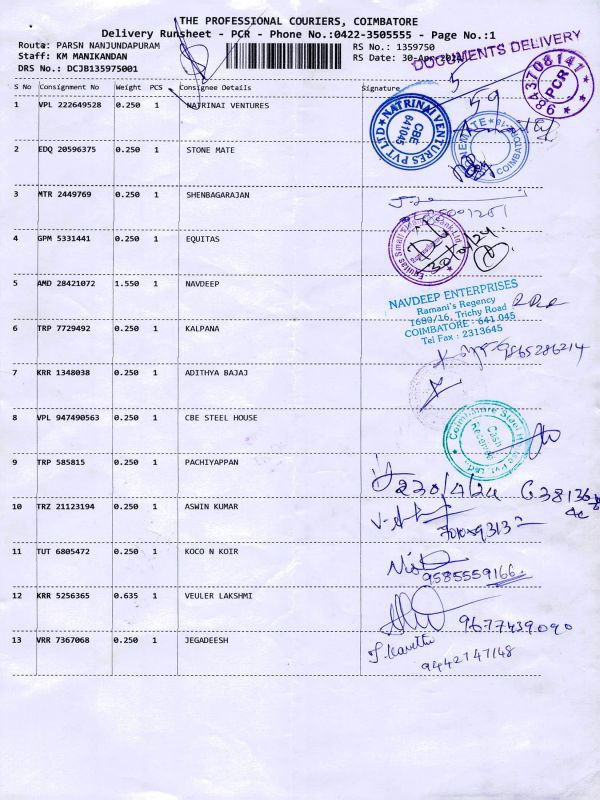 THE PROFESSIONAL COURIERS, COIMBATORE
Delivery Runsheet - PCR - Phone No.:0422-3505555 - Page No.:1
Route: PARSN NANJUNDAPURAM
RS No.: 1359750
Staff: KM MANIKANDAN
RS Date: 30-Apr-2024
DRS No.: DCJB135975001
DOCUMENTS DELIVERY
9843708141
PCR
S No Consignment No Weight PCS Consignee Details Signature
1 VPL 222649528 0.250 1 NATRINAI VENTURES
NATRINAI VENTURES PVT LTD
CBE
641045
5
59
2 EDQ 20596375 0.250 1 STONE MATE
COIMBATORE
3 MTR 2449769 0.250 1 SHENBAGARAJAN
4 GPM 5331441 0.250 1 EQUITAS
Equitas Small Finance Bank Ltd
5 AMD 28421072 1.550 1 NAVDEEP
NAVDEEP ENTERPRISES
Ramani's Regency
1689/16, Trichy Road
COIMBATORE - 641 045
Tel Fax : 2313645
6 TRP 7729492 0.250 1 KALPANA
9865286214
7 KRR 1348038 0.250 1 ADITHYA BAJAJ
8 VPL 947490563 0.250 1 CBE STEEL HOUSE
Coimbatore Steel
9 TRP 585815 0.250 1 PACHIYAPPAN
10 TRZ 21123194 0.250 1 ASWIN KUMAR
11 TUT 6805472 0.250 1 KOCO N KOIR
9585559166
12 KRR 5256365 0.635 1 VEULER LAKSHMI
9677439090
13 VRR 7367068 0.250 1 JEGADEESH
9442747148